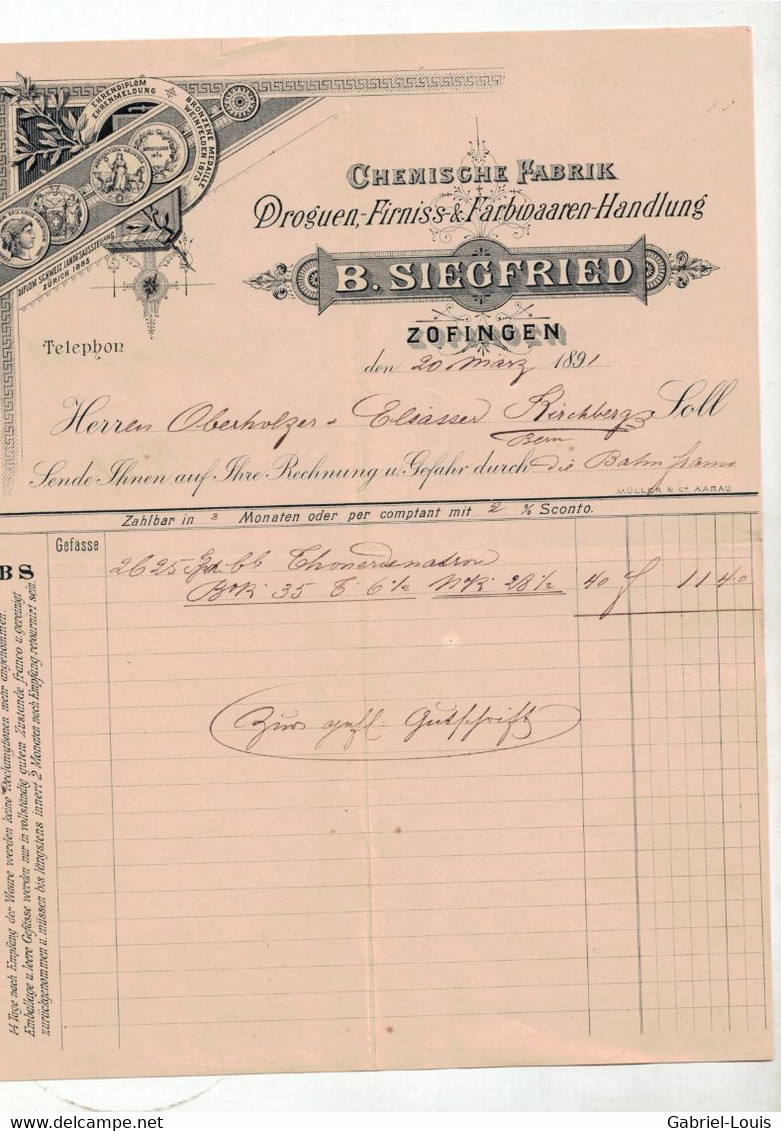 EHRENDIPLOM
EHRENMELDUNG
BRONZENE MEDAILLE
WEINFELDEN 1873
DIPLOM SCHWEIZ. LANDESAUSSTELLUNG
ZÜRICH 1883
CHEMISCHE FABRIK
Droguen-, Firniss- & Farbwaaren-Handlung
B. SIEGFRIED
ZOFINGEN
Telephon
den 20 März 1891
Herren Oberholzer & Elsässer Kirchberg Soll
Bern
Sende Ihnen auf Ihre Rechnung u. Gefahr durch die Bahn franco
MÜLLER & Cº AARAU
Zahlbar in 3 Monaten oder per comptant mit 2 % Sconto.
Gefässe
2625 bb Thonerdenatron
BºK: 35 T 6½ NºK: 28½ 40 f 11 40
Zur gefl. Gutschrift
BS
14 Tage nach Empfang der Waare werden keine Reclamationen mehr angenommen.
Emballage u. leere Gefässe werden nur in vollständig gutem Zustande franco u. gereinigt
zurückgenommen u. müssen bis längstens innert 2 Monaten nach Empfang retournirt sein.
www.delcampe.net
Gabriel-Louis